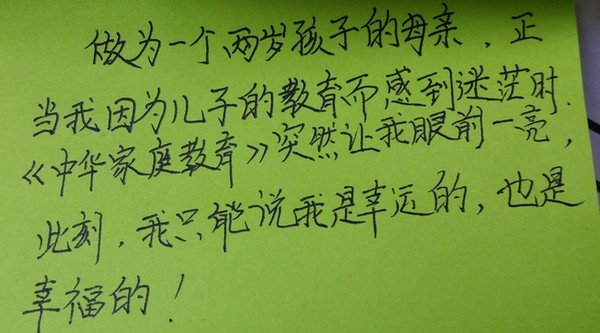 做为一个两岁孩子的母亲，正
当我因为儿子的教育而感到迷茫时.
《中华家庭教育》突然让我眼前一亮，
此刻，我只能说我是幸运的，也是
幸福的！